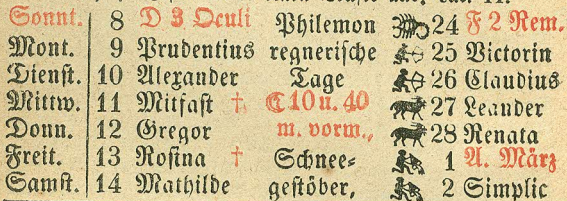 Sonnt. 8 D 3 Oculi Philemon 24 F 2 Rem.
Mont. 9 Prudentius regnerische 25 Victorin
Dienst. 10 Alexander Tage 26 Claudius
Mittw. 11 Mitfast † ☾ 10 u. 40 27 Leander
Donn. 12 Gregor m. vorm., 28 Renata
Freit. 13 Rosina † Schnee= 1 A. März
Samst. 14 Mathilde gestöber, 2 Simplic